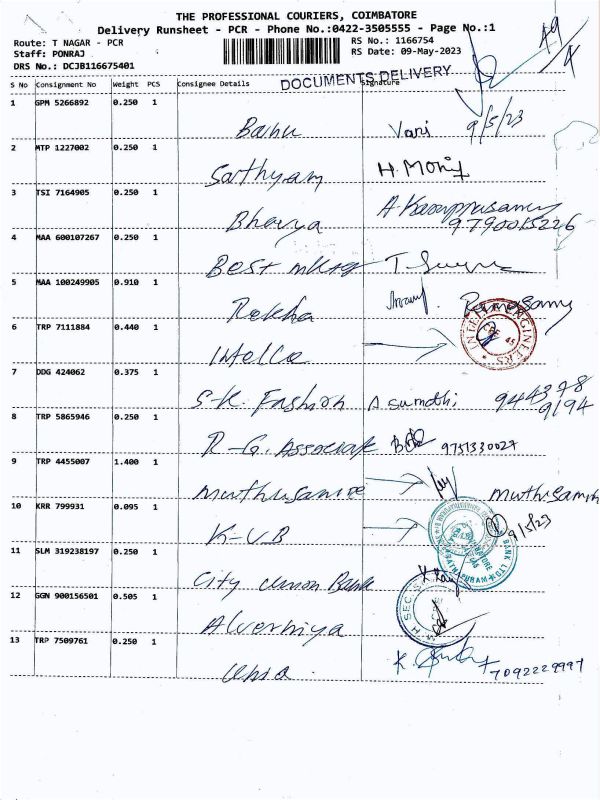 THE PROFESSIONAL COURIERS, COIMBATORE
Delivery Runsheet - PCR - Phone No.:0422-3505555 - Page No.:1
Route: T NAGAR - PCR RS No.: 1166754
Staff: PONRAJ RS Date: 09-May-2023
DRS No.: DCJB116675401
DOCUMENTS DELIVERY
S No Consignment No Weight PCS Consignee Details Signature
1 GPM 5266892 0.250 1
Vani 9/5/23
2 MTP 1227002 0.250 1
Sathyam
3 TSI 7164905 0.250 1
Bhavya 9790015226
4 MAA 600107267 0.250 1
Best
5 MAA 100249905 0.910 1
Rekha Ramasamy
6 TRP 7111884 0.440 1
Intello
7 DDG 424062 0.375 1
S.K. Fashion A Sumathi 944378
9194
8 TRP 5865946 0.250 1
R-G. Associate 9751330027
9 TRP 4455007 1.400 1
10 KRR 799931 0.095 1
K-V.B 9/5/23
11 SLM 319238197 0.250 1
City Union Bank
12 GGN 900156501 0.505 1
13 TRP 7509761 0.250 1
Usha 7092229997